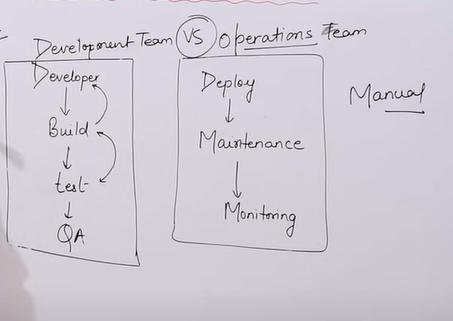 Development Team VS Operations Team
Developer
Build
test
QA
Deploy
Maintenance
Monitoring
Manual